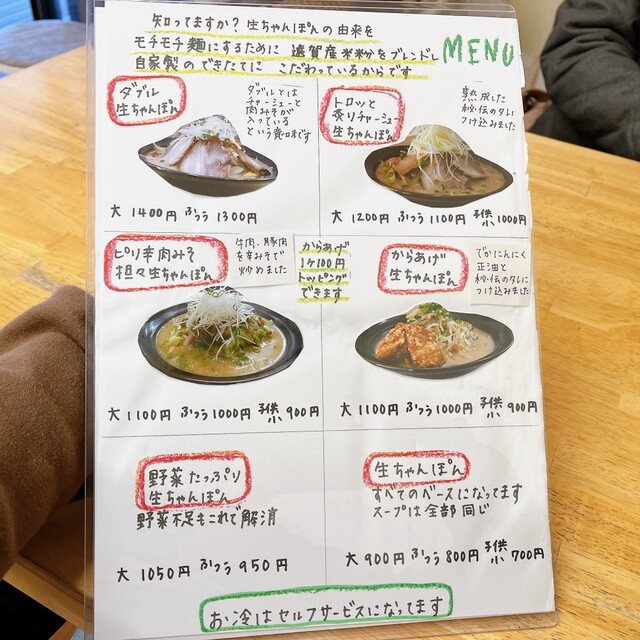 知ってますか？生ちゃんぽんの由来を
モチモチ麺にするために 遠賀産米粉をブレンドし
自家製のできたてに こだわっているからです
MENU
ダブル
生ちゃんぽん
ダブルとは
チャーシューと
肉みそが
入っている
という意味です
大 1400円 ふつう 1300円
トロッと
炙りチャーシュー
生ちゃんぽん
熟成した
秘伝のタレに
つけ込みました
大 1200円 ふつう 1100円 子供 1000円
ピリ辛肉みそ
担々生ちゃんぽん
牛肉、豚肉
を辛みそで
炒めました
からあげ
1ケ100円
トッピング
できます
大 1100円 ふつう 1000円 子供 900円
からあげ
生ちゃんぽん
でかにんにく
正油と
秘伝のタレに
つけ込みました
大 1100円 ふつう 1000円 子供 900円
野菜たっぷり
生ちゃんぽん
野菜不足もこれで解消
大 1050円 ふつう 950円
生ちゃんぽん
すべてのベースになってます
スープは全部同じ
大 900円 ふつう 800円 子供 700円
お冷はセルフサービスになってます